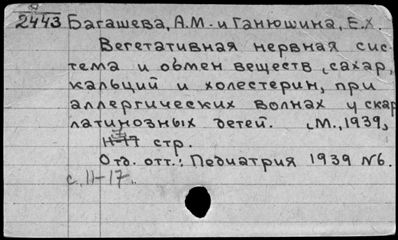 2443 Багашева, А.М. и Ганюшина, Е.Х.
Вегетативная нервная сис-
тема и обмен веществ, сахар,
кальций и холестерин, при
аллергических волнах у скар
латинозных детей. М., 1939,
11-17 стр.
Отд. отт.: Педиатрия 1939 №6.
с. 11-17.